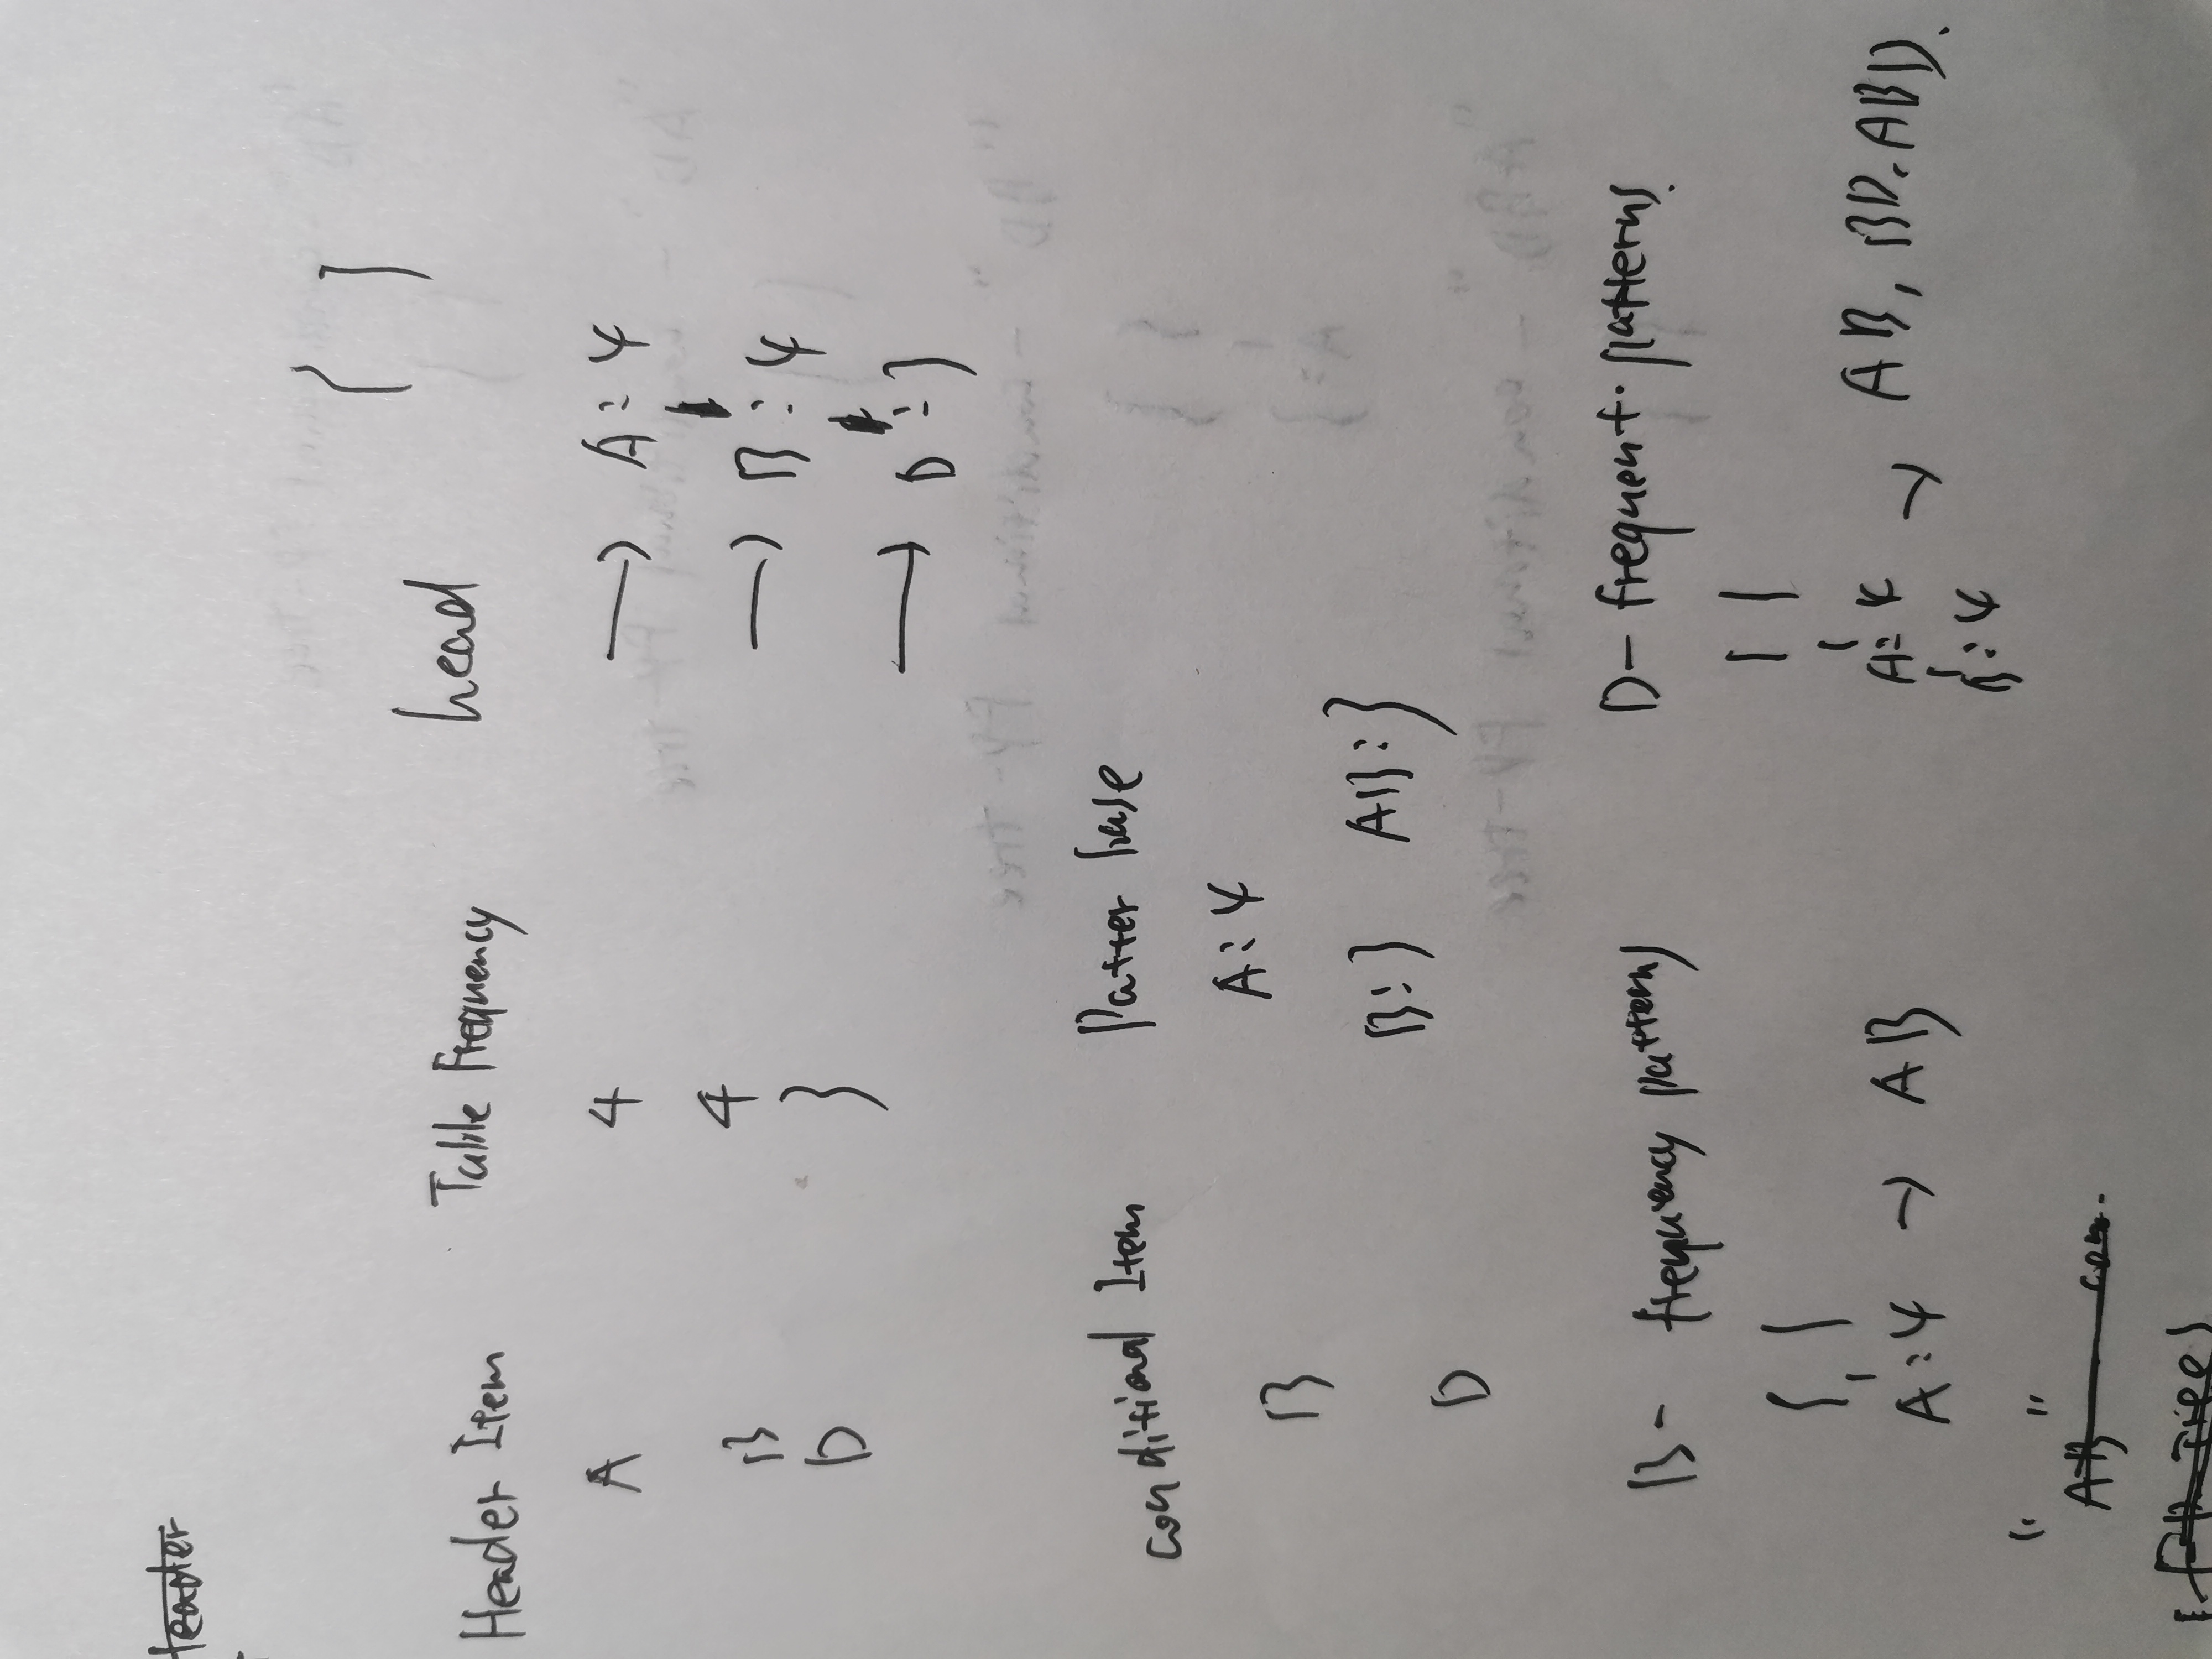 Header
{ }
Header Item Table frequency head
A 4 → A:4
B 4 → B:4
D 3 → D:3
conditional Item Patter base
B A:4
D B:3 AB:3
B - frequency patterns D - frequent patterns.
{ } { }
A:4 → AB A:4 → AB, BD, ABD.
B:4
" "
AB con.
FP-Tree